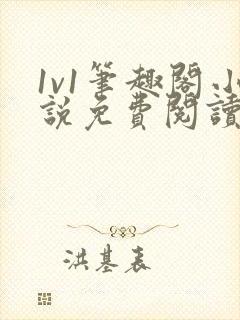 1v1筆趣閣.
說免費閱讀
洪基表